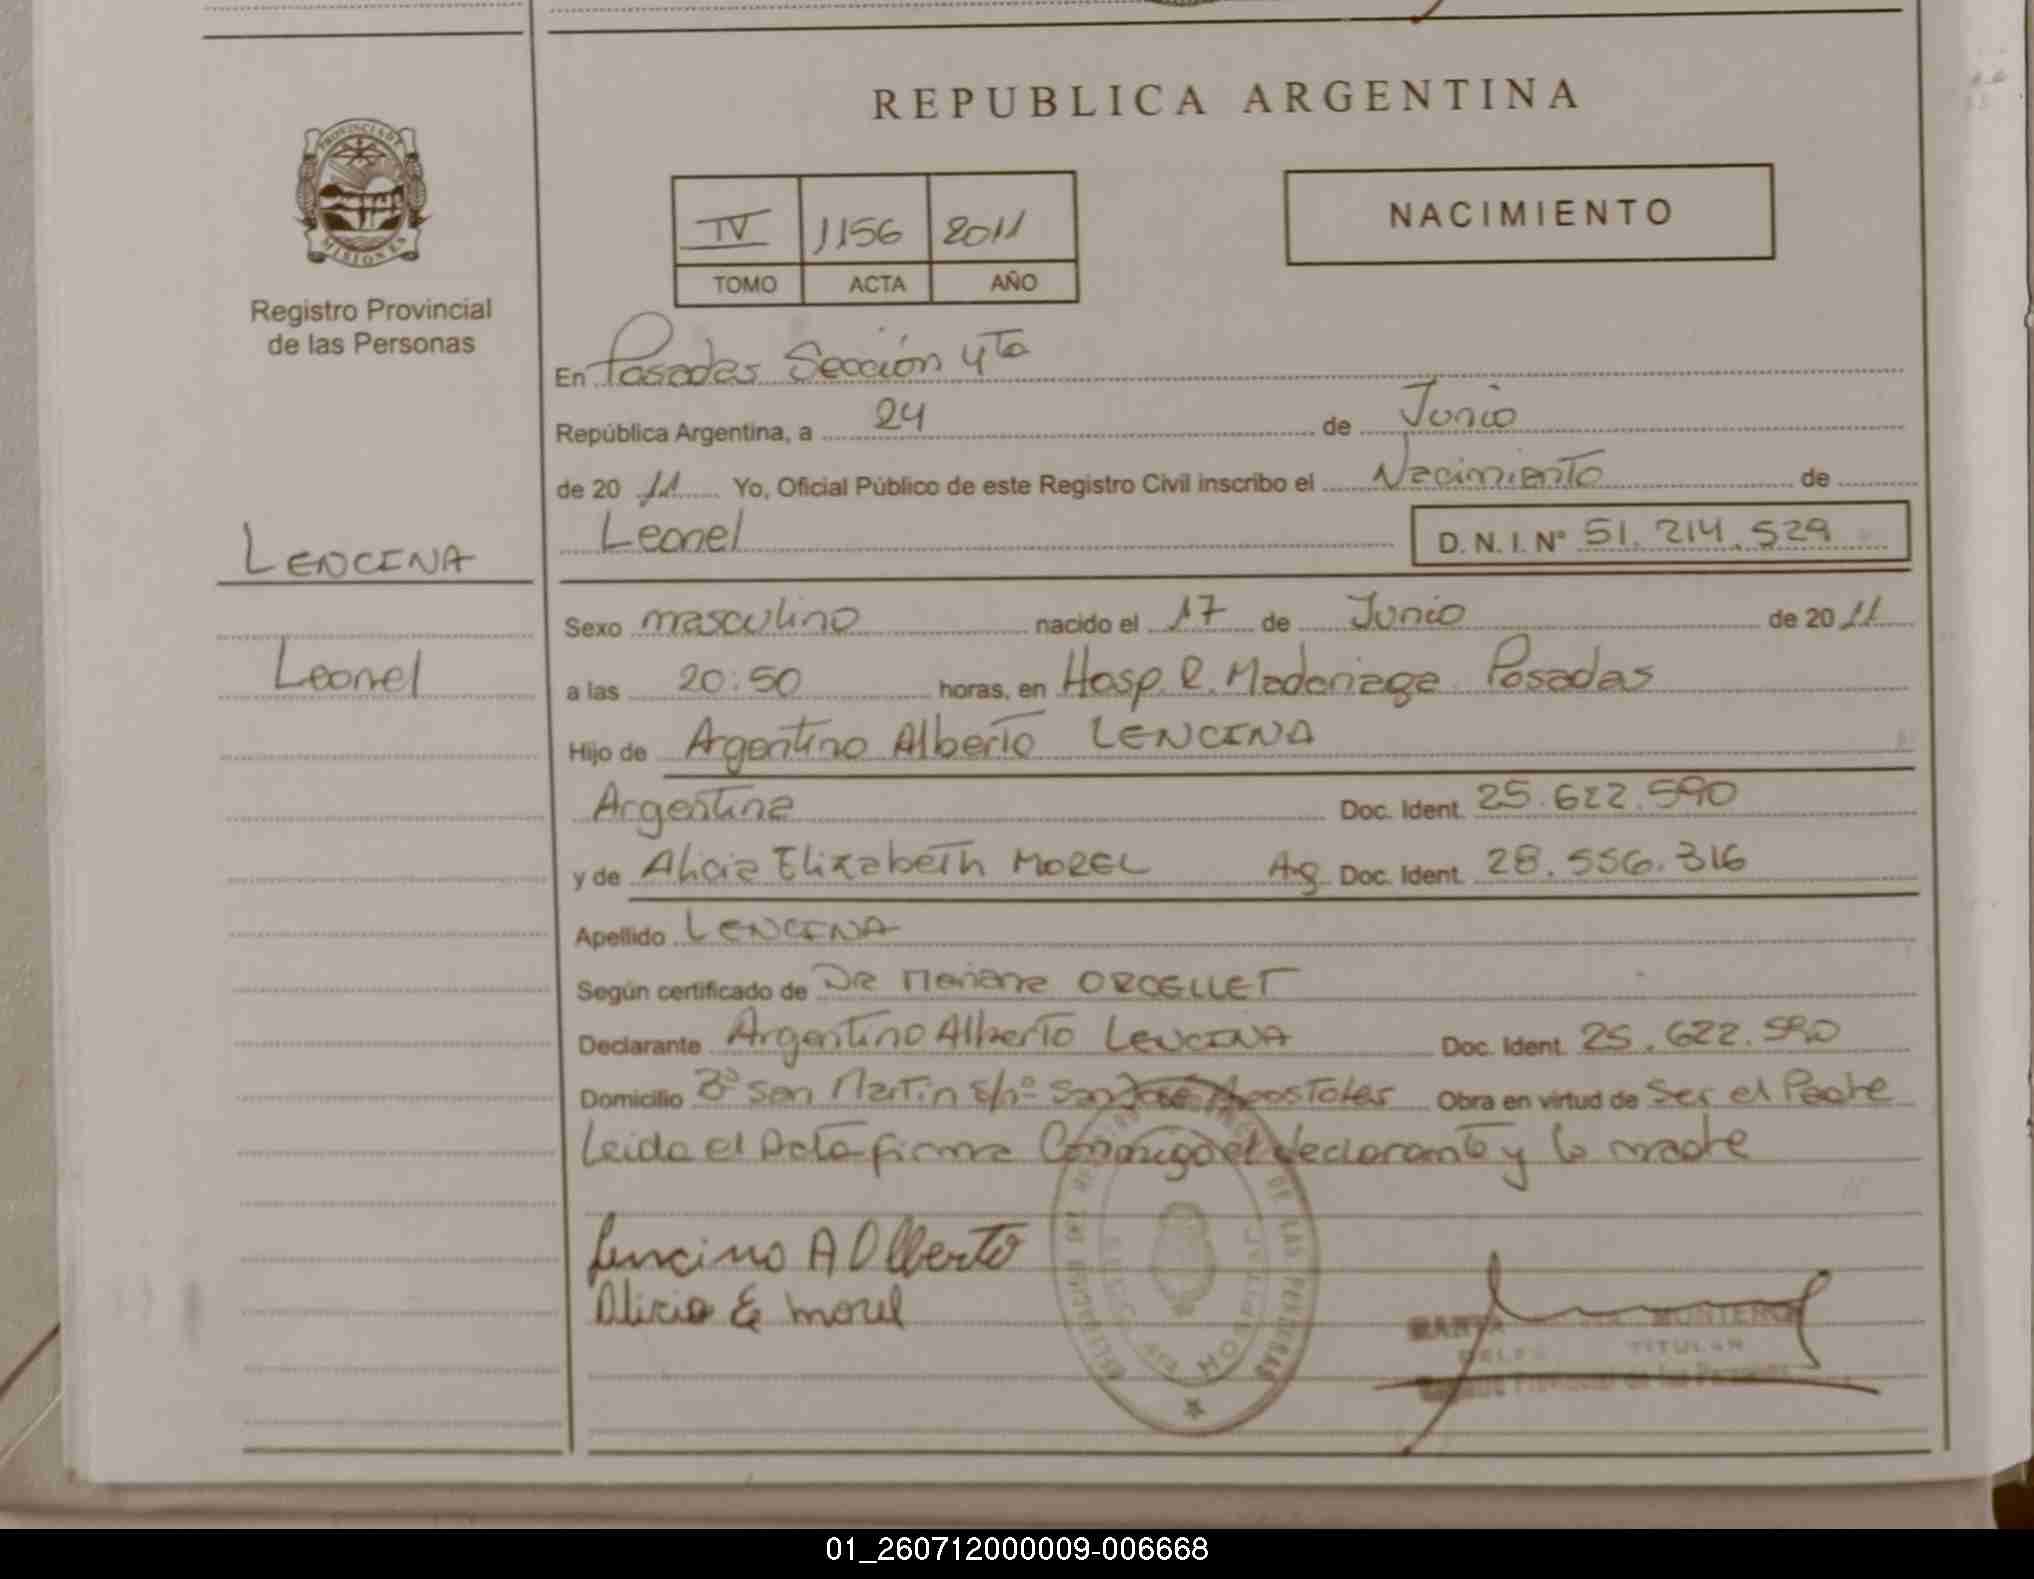 REPUBLICA ARGENTINA
PROVINCIA DE
MISIONES
Registro Provincial
de las Personas
IV 1156 2011
TOMO ACTA AÑO
NACIMIENTO
En Posadas Sección 4ta
República Argentina, a 24 de Junio
de 20 11 Yo, Oficial Público de este Registro Civil inscribo el Nacimiento de
LENCINA
Leonel D. N. I. N° 51.214.529
Sexo masculino nacido el 17 de Junio de 20 11
Leonel
a las 20:50 horas, en Hosp. R. Madariaga Posadas
Hijo de Argentino Alberto LENCINA
Argentina Doc. Ident. 25.622.590
y de Alicia Elizabeth MOREL Arg. Doc. Ident. 28.556.316
Apellido LENCINA
Según certificado de Dra Mariana
Declarante Argentino Alberto LENCINA Doc. Ident. 25.622.590
Domicilio Bº San Martin s/nº San José Apostoles Obra en virtud de Ser el Padre
Leida el Acta firma Conmigo el declarante y la madre
Lencina A Alberto
Alicia E morel
DE LAS PERSONAS
HOSPITAL
MONTERO
TITULAR
Provincial de las Personas
01_260712000009-006668